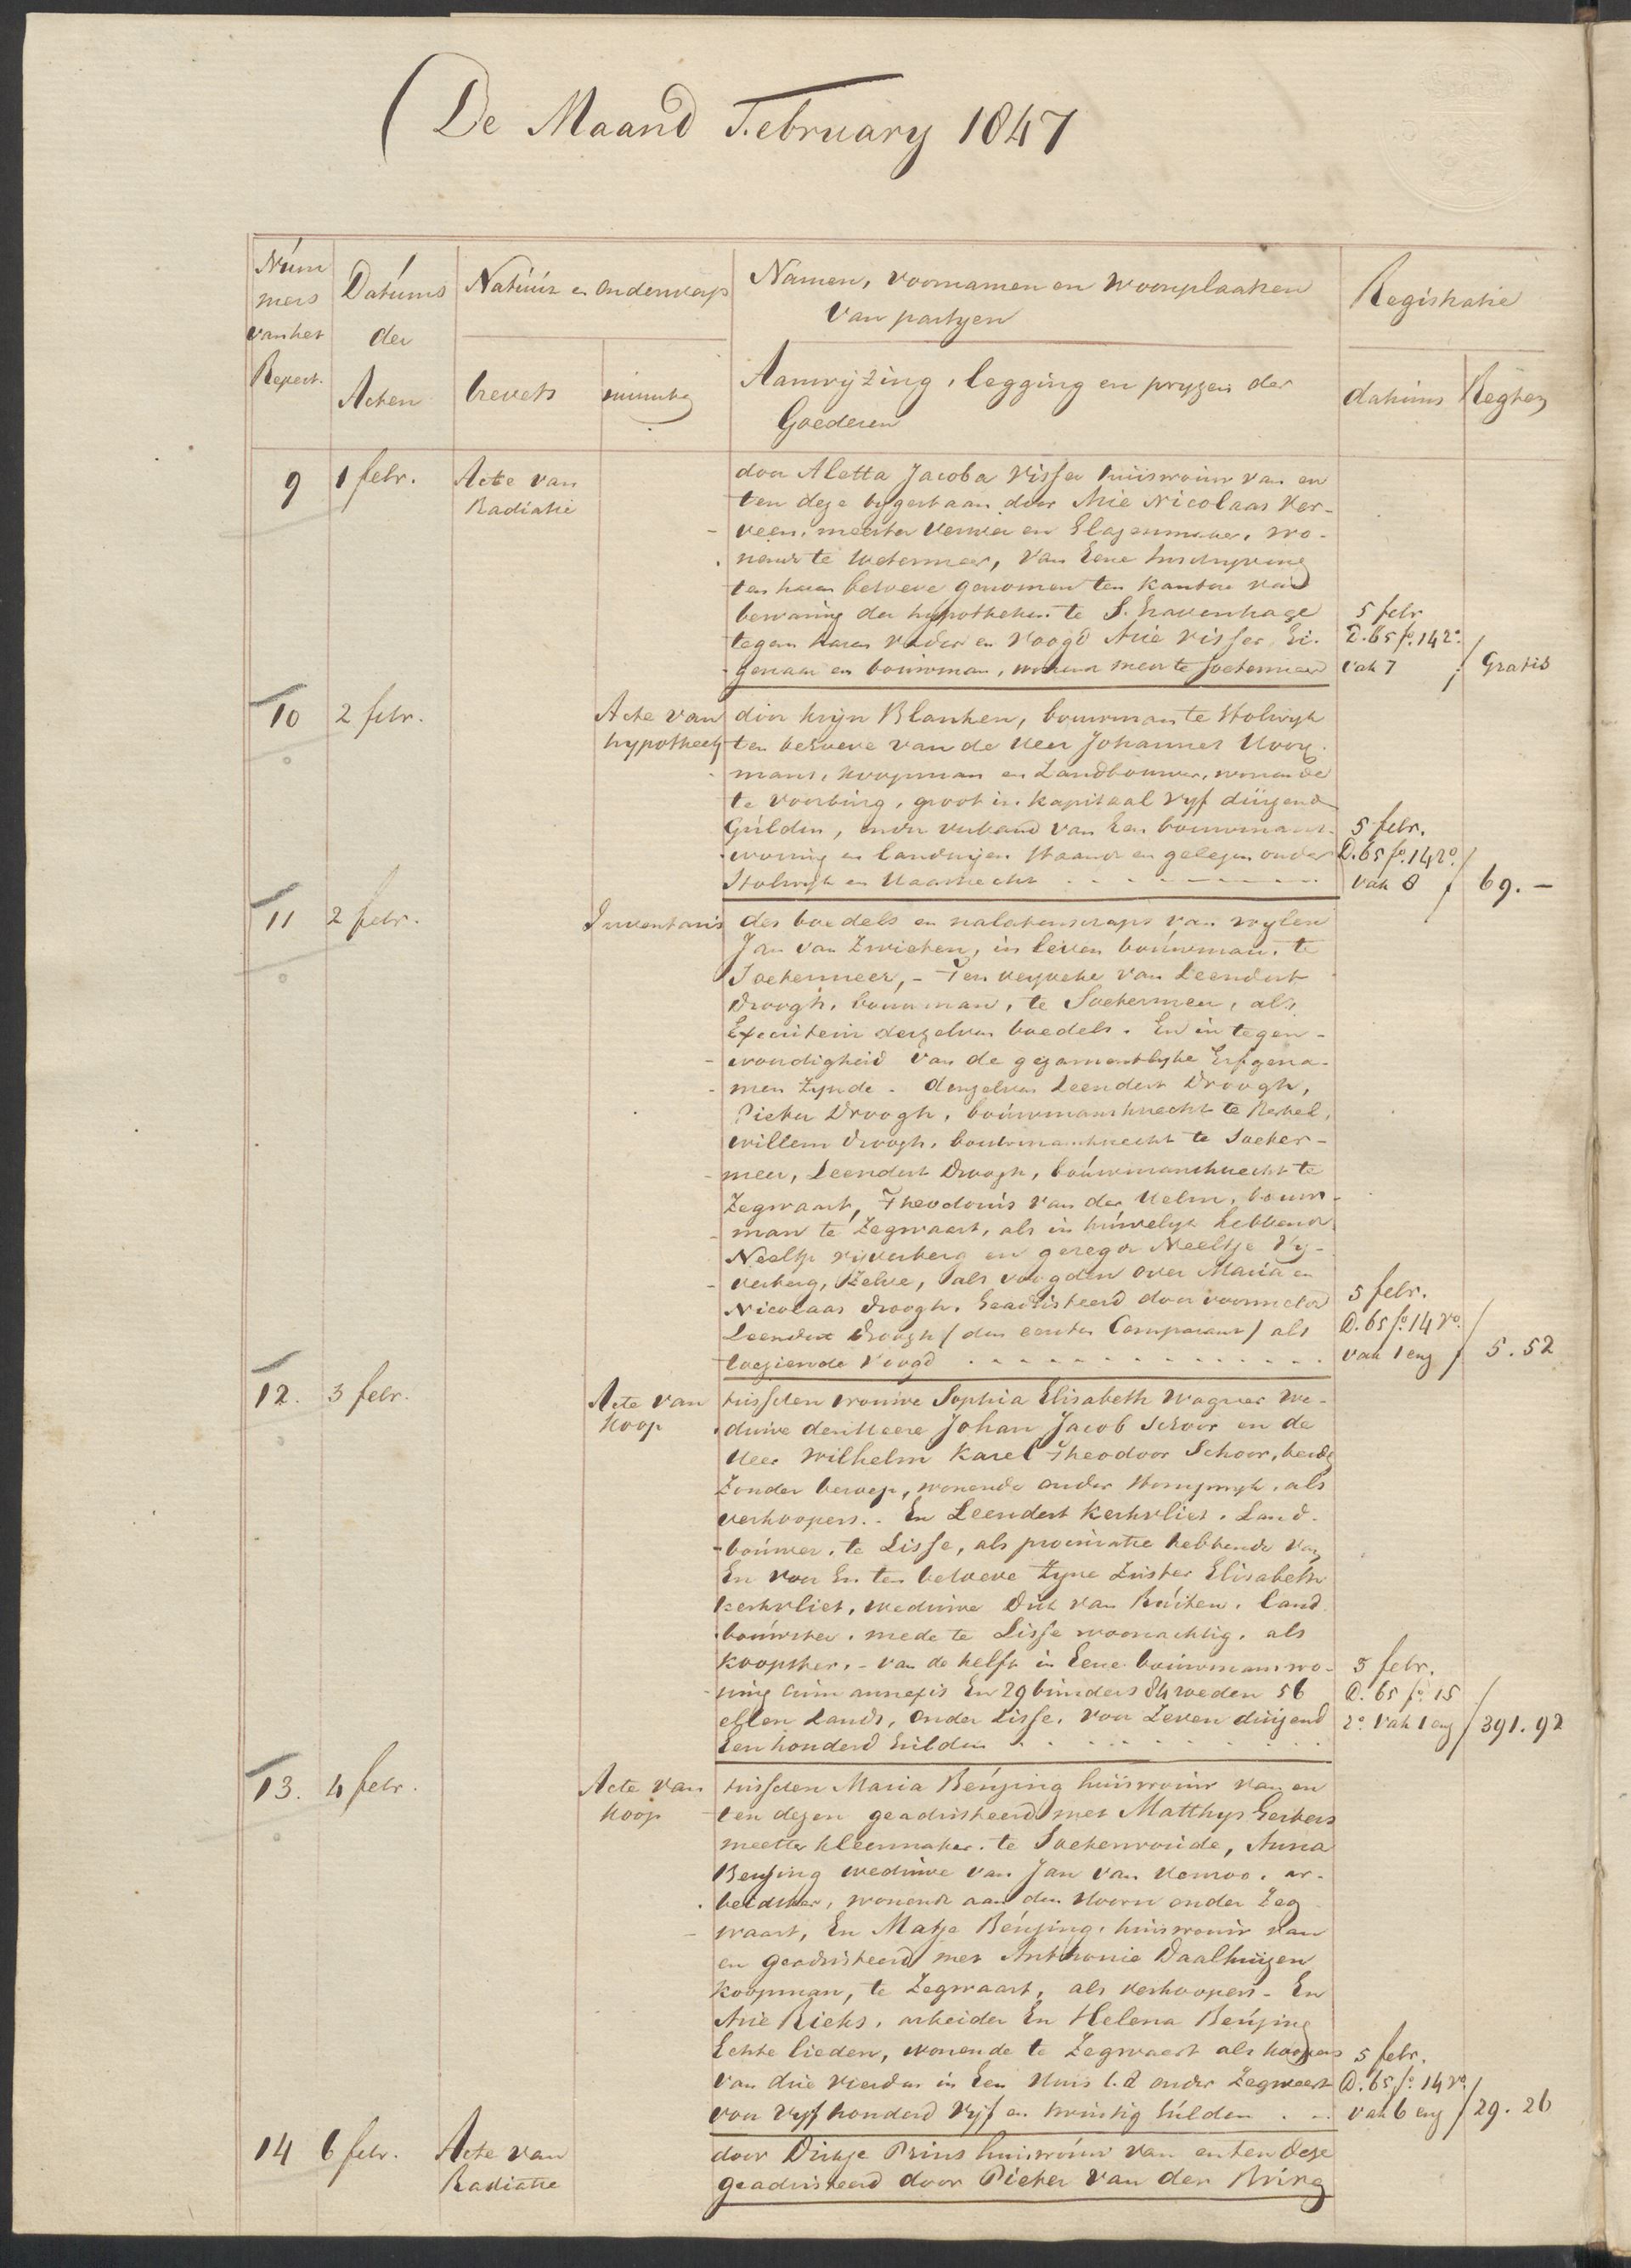 De Maand February 1847
Num
mers
van het
Repert.
Datums
der
Acten
Natuur en Onderwerp
brevets
minuten
Namen, voornamen en woonplaatsen
van partyen
Aanwyzing, legging en pryzen der
Goederen
Registratie
datums
Regten
9
1 febr.
Acte van
Radiatie
door Aletta Jacoba Visser huisvrouw van en
ten deze bygestaan door Arie Nicolaas Ver-
veen, meester verwer en Glazenmaker, wo-
nende te Zoetermeer, van Eene Inschryving
ten haren behoeve genomen ten kantore van
bewaring der hypotheken te S. Gravenhage
tegen haren vader en voogd Arie Visser, Ei-
genaar en bouwman, wonende mede te Zoetermeer
5 febr
D. 65 fo. 14 2o.
vak 7
Gratis
10
2 febr.
Acte van
hypotheek
door Kryn Blanken, bouwman te Stolwyk
ten behoeve van de Heer Johannes Hooy-
mans, koopman en Landbouwer, wonende
te Voorburg, groot in kapitaal vyf duizend
Gulden, onder verband van Een bouwmans-
woning en landeryen staande en gelegen onder
Stolwyk en Haastrecht
5 febr.
D. 65 fo. 14 2o.
vak 8
69. -
11
2 febr.
Inventaris
des boedels en nalatenschaps van wylen
Jan van Zwieten, in leven bouwman te
Zoetermeer, - Ten verzoeke van Leendert
Droogh, bouwman, te Zoetermeer, als
Executeur derzelven boedels. En in tegen-
woordigheid van de gezamentlyke Erfgena-
men zynde. denzelven Leendert Droogh,
Pieter Droogh, bouwmansknecht te Berkel,
willem Droogh, bouwmansknecht te Zoeter-
meer, Leendert Droogh, bouwmansknecht te
Zegwaart, Theodorus van der Helm, bouw-
man te Zegwaart, als in huwelyk hebbende
Neeltje Vyverberg en gezegde Neeltje Vy-
verberg, Zelve, als voogden over Maria en
Nicolaas Droogh. Geadsisteerd door voornoemde
Leendert Droogh (den eersten Comparant) als
toeziende voogd
5 febr.
D. 65 fo. 14 vo.
vak 1 env
5. 52
12.
3 febr.
Acte van
Koop
tusschen vrouwe Sophia Elisabeth Wagner we-
duwe den Heere Johan Jacob Schoor en de
Heer Wilhelm Karel Theodoor Schoor, beide
Zonder beroep, wonende onder Stompwyk, als
verkoopers. En Leendert Kerkvliet, Land-
bouwer, te Lisse, als procuratie hebbende van
En voor En ten behoeve Zyne Zuster Elisabeth
Kerkvliet, weduwe Dirk van Ruiten, land-
bouwster, mede te Lisse woonachtig, als
Koopster. - van de helft in Eene bouwmanswo-
ning cum annexis En 29 bunders 84 roeden 56
ellen Lands, onder Lisse, voor Zeven duizend
Een honderd Gulden
5 febr.
D. 65 fo. 15
2o. vak 1 env
391. 92
13.
4 febr.
Acte van
Koop
tusschen Maria Benzing huisvrouw van en
ten dezen geadsisteerd met Matthys Gerkers
meester kleermaker te Zoeterwoude, Anna
Benzing weduwe van Jan van , ar-
beidster, wonende aan den Hoorn onder Zeg-
waart, En Matje Benzing, huisvrouw van
en geadsisteerd met Anthonie Daalhuizen
Koopman, te Zegwaart, als verkoopers - En
Arie Rieks, arbeider En Helena Benzing
Echte lieden, wonende te Zegwaart als koopers
van drie vierden in Een Huis l.d onder Zegwaart
voor vyf honderd vyf en twintig Gulden
5 febr.
D. 65 fo. 14 vo.
vak 6 env
29. 26
14
6 febr.
Acte van
Radiatie
door Dirkje Prins huisvrouw van en ten deze
geadsisteerd door Pieter van den Bring